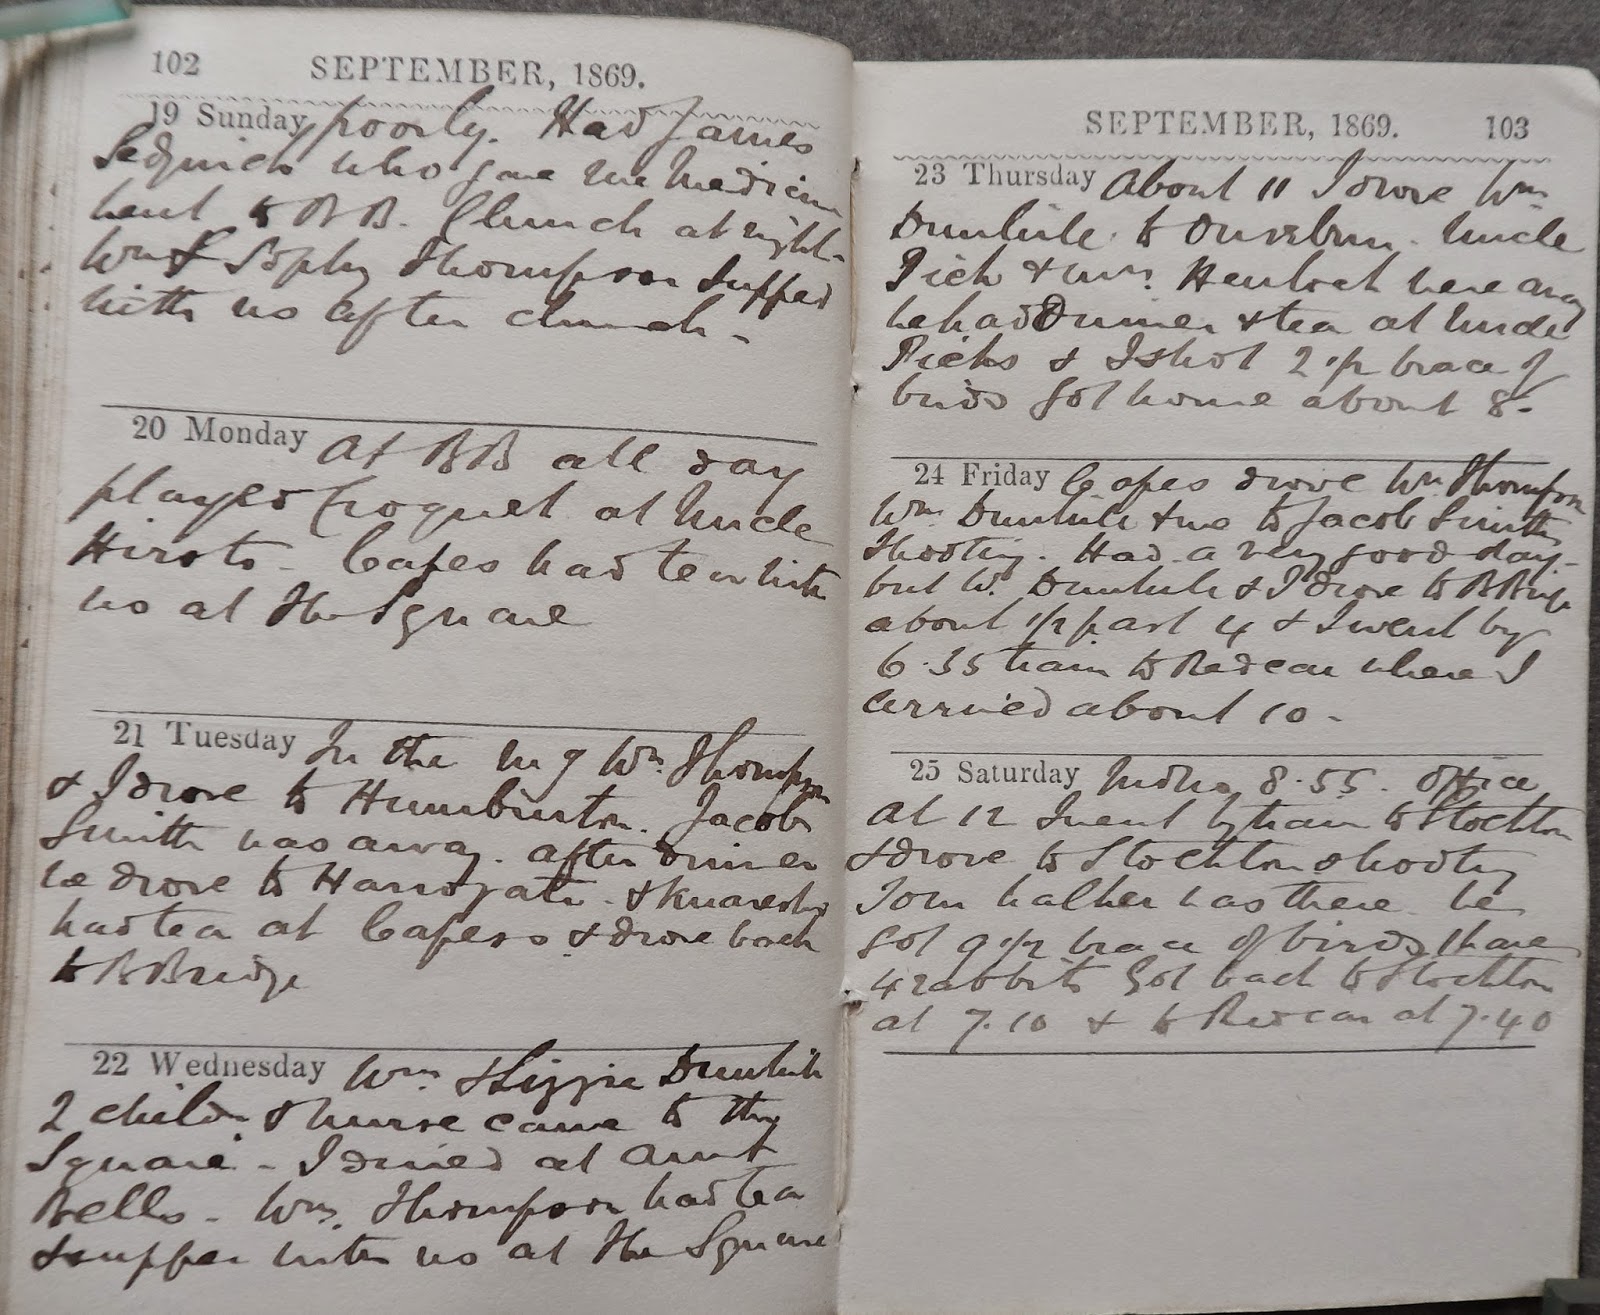 102 SEPTEMBER, 1869.
19 Sunday poorly. Had James
Sedgwick who gave me medicine
went to BB. Church at night.
Wm & Sophy Thompson supped
with us after church -
20 Monday At BB all day
played Croquet at Uncle
Hirsts - Capes had tea with
us at The Square
21 Tuesday In the mg Wm. Thompson
& I drove to Humburton. Jacob
Smith was away. after dinner
we drove to Harrogate & Knaresbro
had tea at Capes's & drove back
to BBridge
22 Wednesday Wm. & Lizzie Dunhill
2 childn & nurse came to the
Square - I dined at Aunt
Bells - Wm. Thompson had tea
& supper with us at The Square
SEPTEMBER, 1869. 103
23 Thursday About 11 I drove Wm
Dunhill to Ouseburn. Uncle
Dick & Mrs. were away
he had Dinner & tea at Uncle
Dicks & I shot 2 1/2 brace of
birds got home about 8.
24 Friday Capes drove Wm Thompson
Wm. Dunhill & me to Jacob Smiths
Shooting. Had a very good day -
but W. Dunhill & I drove to BBridge
about 1/2 past 4 & I went by
6.35 train to Redcar where I
arrived about 10 -
25 Saturday Mdbro 8.55. Office
at 12 I went by train to Stockton
& drove to Stockton shooting
Tom Walker was there we
got 9 1/2 brace of birds 1 hare
4 rabbits Got back to Stockton
at 7.10 & to Redcar at 7.40